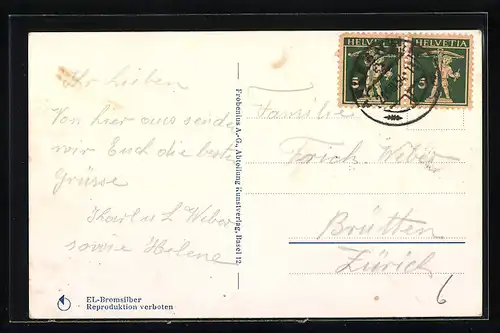 Ihr Lieben
Von hier aus sende
wir Euch die beste
Grüsse
Karl u L Weber
sowie Helene
EL-Bromsilber
Reproduktion verboten
Frobenius A.-G., Abteilung Kunstverlag, Basel 12.
HELVETIA HELVETIA
5 5
Familie
Weber
Brütten
Zürich
6